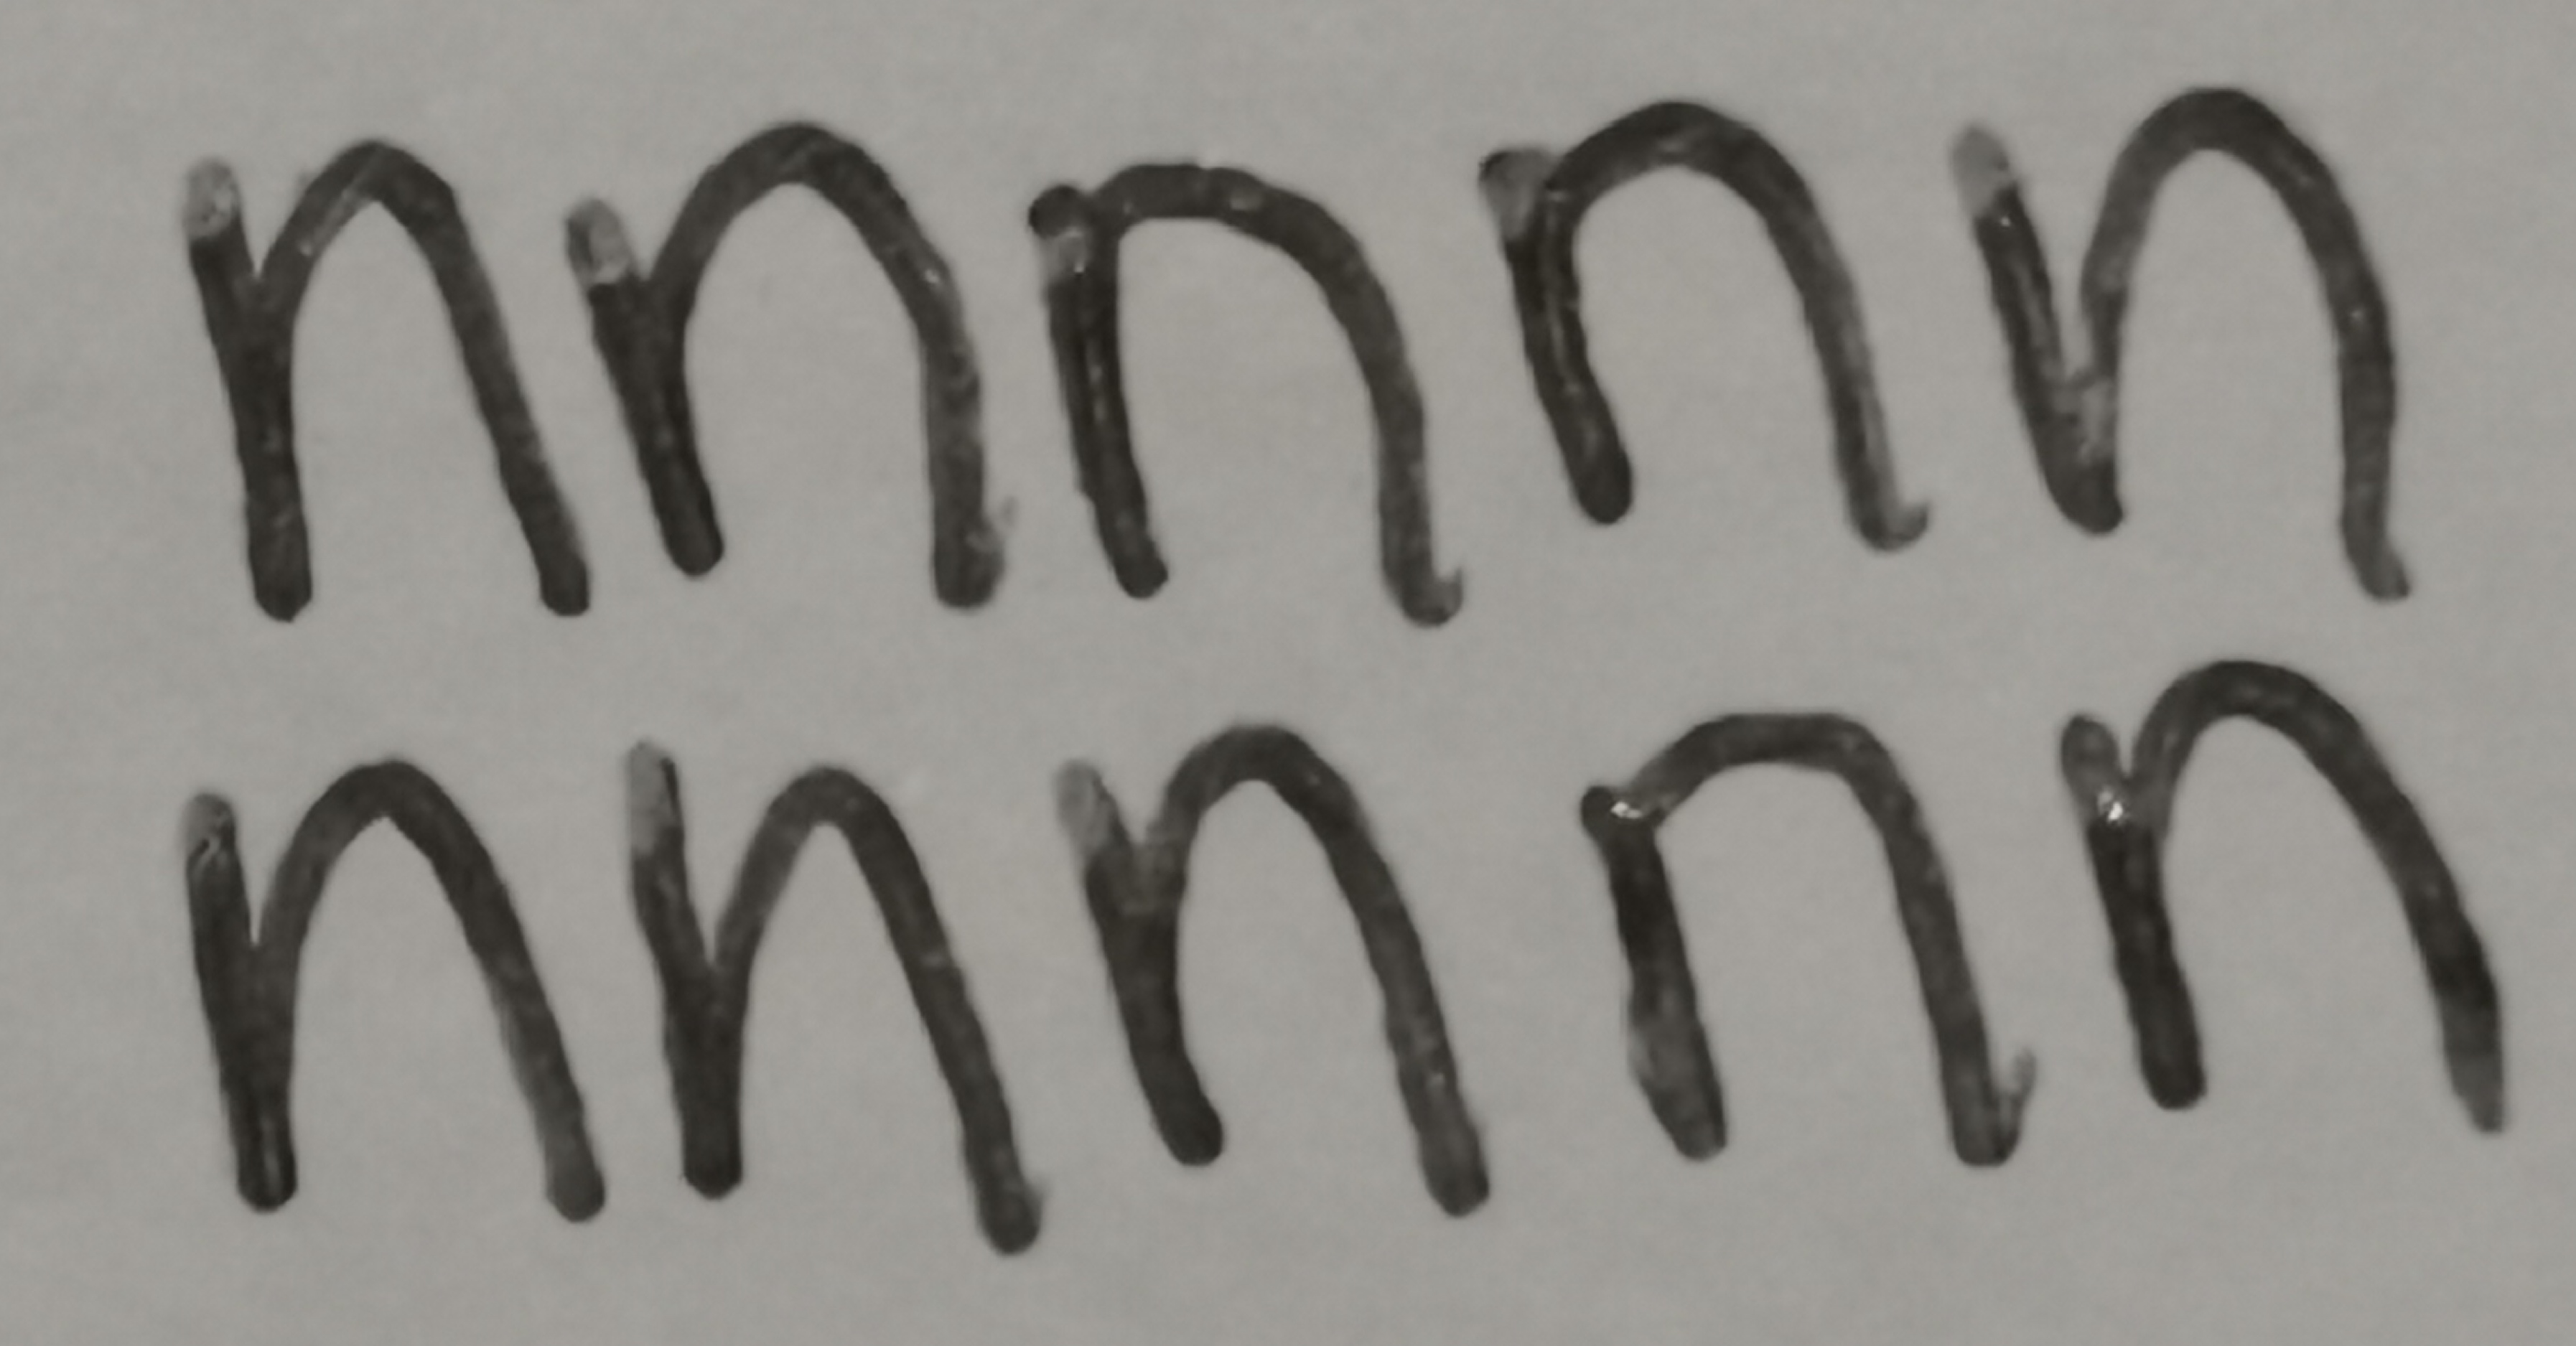 nnnnn
nnnnn